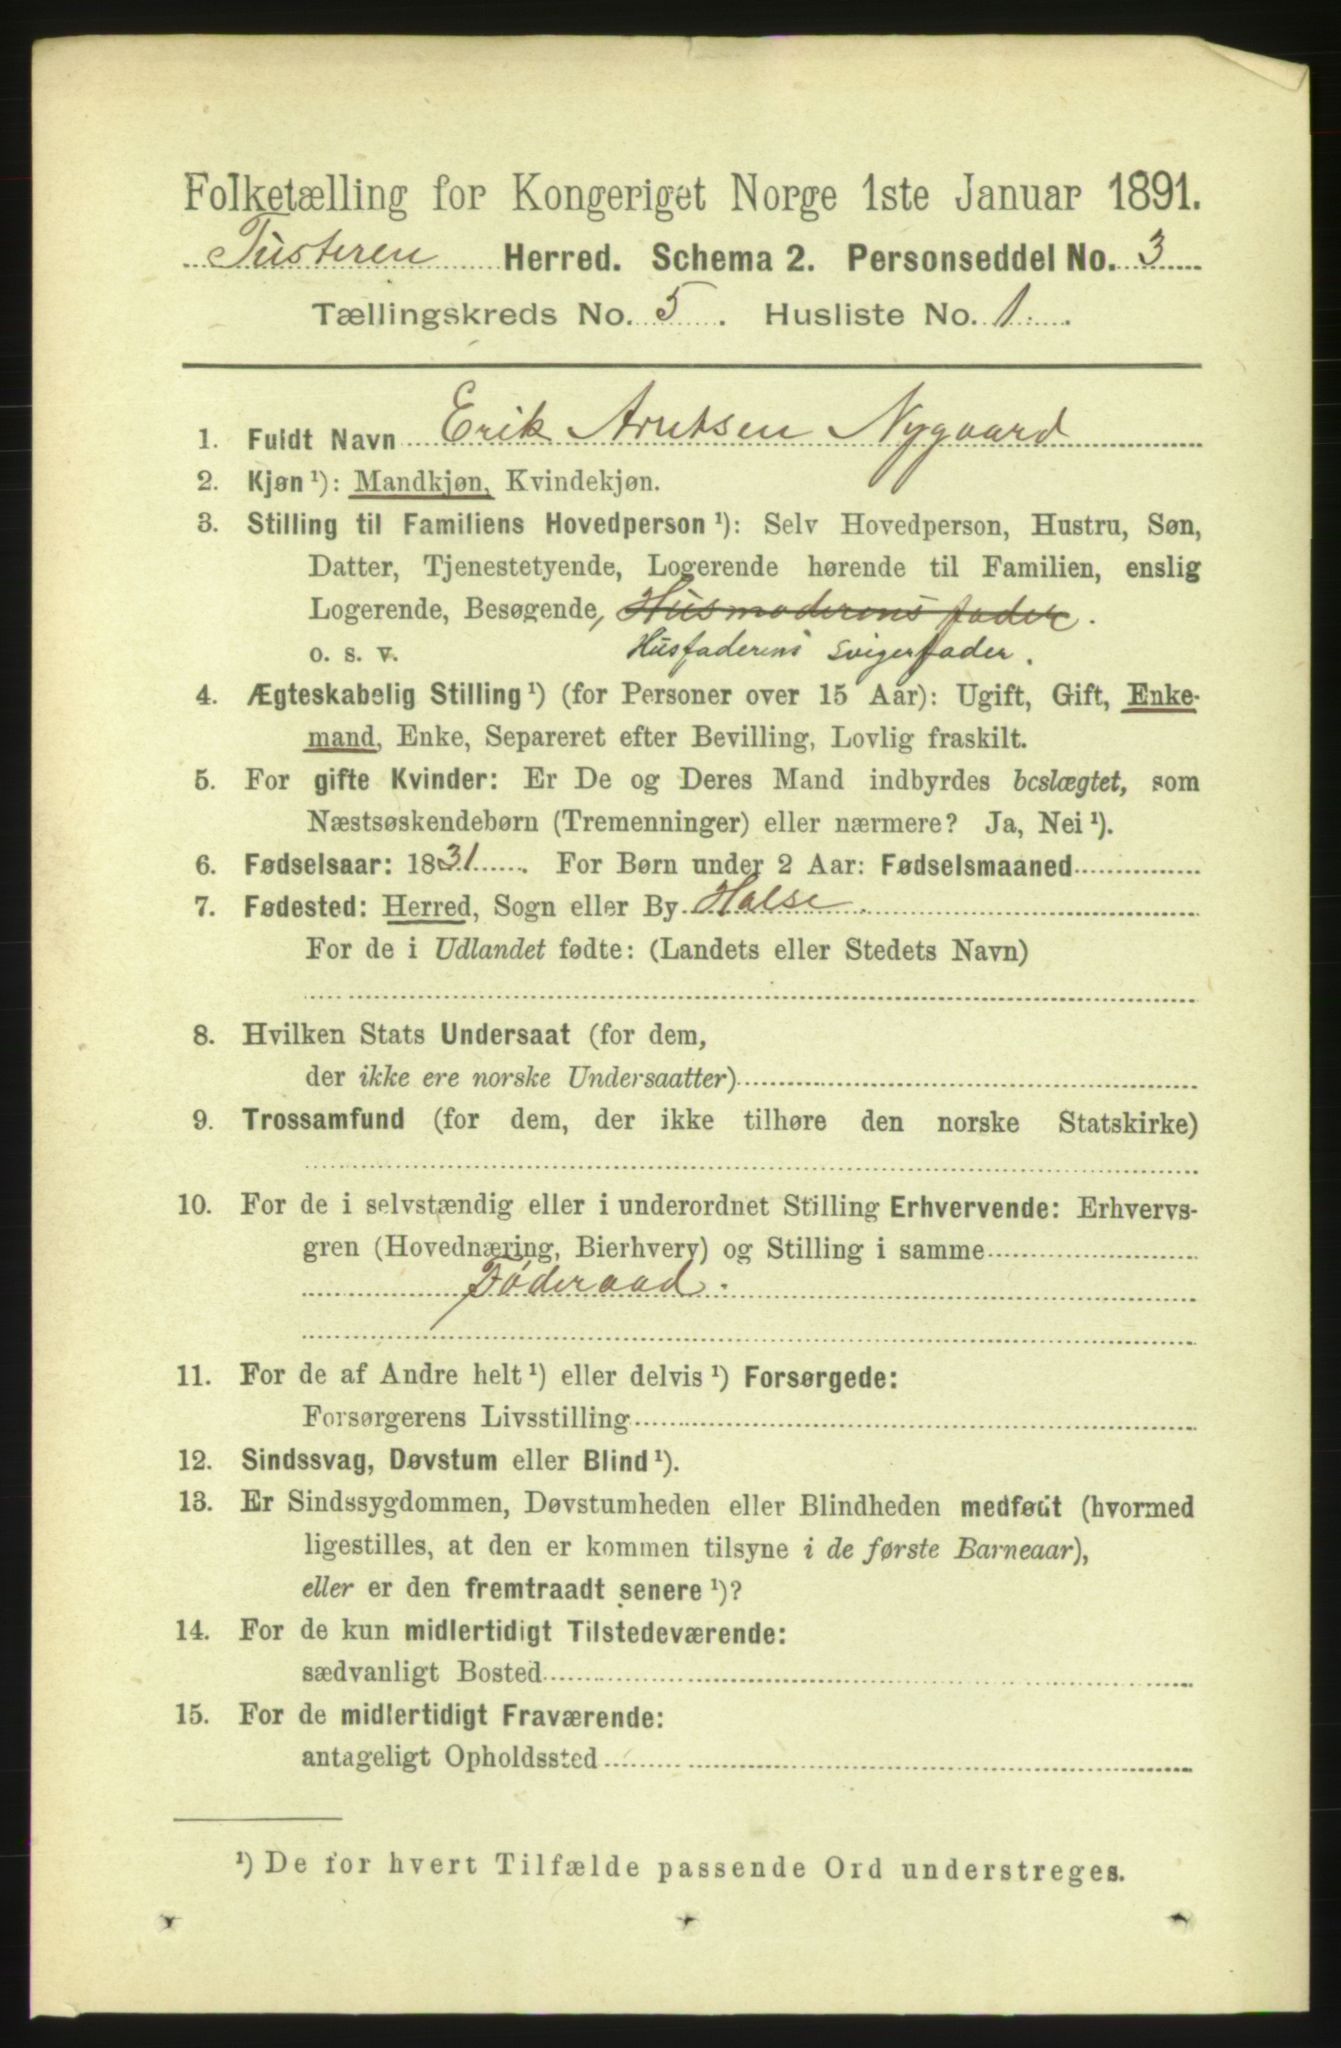 Folketælling for Kongeriget Norge 1ste Januar 1891.
Tusteren Herred. Schema 2. Personseddel No. 3
Tællingskreds No. 5. Husliste No. 1.
1. Fuldt Navn Erik Arntsen Nygaard
2. Kjøn ¹): Mandkjøn, Kvindekjøn.
3. Stilling til Familiens Hovedperson ¹): Selv Hovedperson, Hustru, Søn,
Datter, Tjenestetyende, Logerende hørende til Familien, enslig
Logerende, Besøgende, Husmoderens fader.
o. s. v. Husfaderens svigerfader.
4. Ægteskabelig Stilling ¹) (for Personer over 15 Aar): Ugift, Gift, Enke-
mand, Enke, Separeret efter Bevilling, Lovlig fraskilt.
5. For gifte Kvinder: Er De og Deres Mand indbyrdes beslægtet, som
Næstsøskendebørn (Tremenninger) eller nærmere? Ja, Nei ¹).
6. Fødselsaar: 1831. For Børn under 2 Aar: Fødselsmaaned
7. Fødested: Herred, Sogn eller By Halse.
For de i Udlandet fødte: (Landets eller Stedets Navn)
8. Hvilken Stats Undersaat (for dem,
der ikke ere norske Undersaatter)
9. Trossamfund (for dem, der ikke tilhøre den norske Statskirke)
10. For de i selvstændig eller i underordnet Stilling Erhvervende: Erhvervs-
gren (Hovednæring, Bierhverv) og Stilling i samme
Føderaad.
11. For de af Andre helt ¹) eller delvis ¹) Forsørgede:
Forsørgerens Livsstilling
12. Sindssvag, Døvstum eller Blind ¹).
13. Er Sindssygdommen, Døvstumheden eller Blindheden medfødt (hvormed
ligestilles, at den er kommen tilsyne i de første Barneaar),
eller er den fremtraadt senere ¹)?
14. For de kun midlertidigt Tilstedeværende:
sædvanligt Bosted
15. For de midlertidigt Fraværende:
antageligt Opholdssted
¹) De for hvert Tilfælde passende Ord understreges.